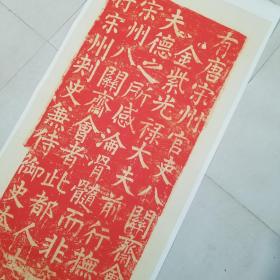 有唐宋州官吏八關齋會
金紫光祿大夫前行撫
夫德之所感淪骨髓而非
宋州八關齋會者此都人
宋州刺史兼侍御史本